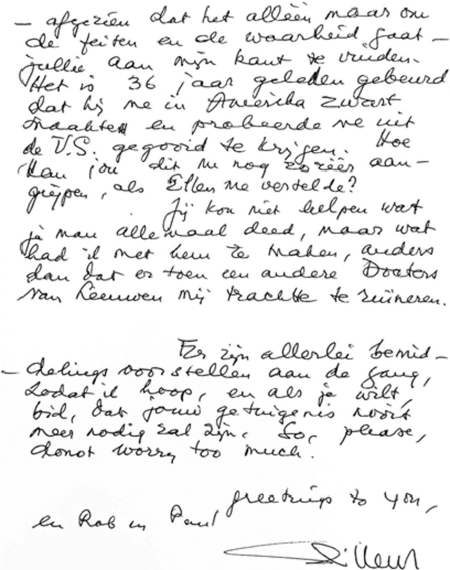 – afgezien dat het alléén maar om
de feiten en de waarheid gaat –
jullie aan mijn kant te vinden.
Het is 36 jaar geleden gebeurd
dat hij me in Amerika zwart
maakte en probeerde me uit
de V.S. gegooid te krijgen. Hoe
kan jou dit nu nog zo réés aan-
grijpen, als Ellen me vertelde?
Jij kon niet helpen wat
je man allemaal deed, maar wat
had ik met hem te maken, anders
dan dat er toen een andere Dooters
van Leeuwen mij trachtte te ruïneren.
Er zijn allerlei bemid-
– delings voorstellen aan de gang,
zodat ik hoop, en als je wilt,
bid, dat jouw getuigenis nooit
meer nodig zal zijn. So, please,
donot worry too much.
greetings to you,
en Rob en Paul
Willem